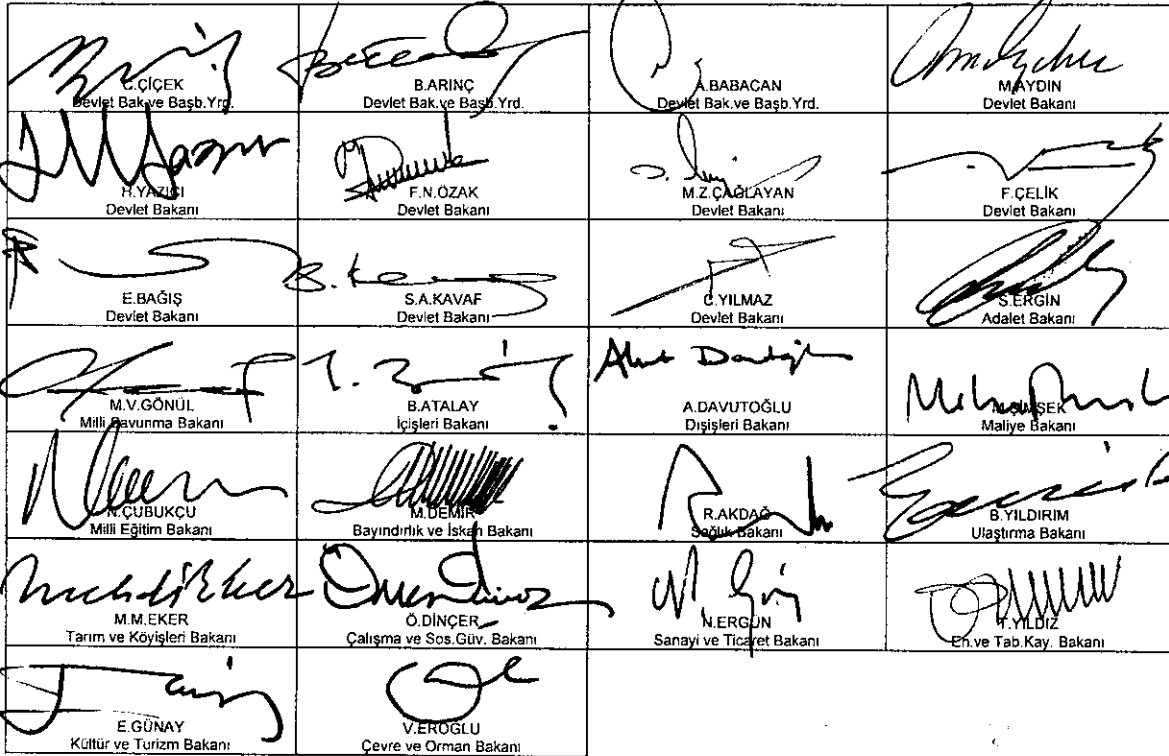 C.ÇİÇEK
Devlet Bak.ve Başb.Yrd.
B.ARINÇ
Devlet Bak.ve Başb.Yrd.
A.BABACAN
Devlet Bak.ve Başb.Yrd.
M.AYDIN
Devlet Bakanı
H.YAZICI
Devlet Bakanı
F.N.ÖZAK
Devlet Bakanı
M.Z.ÇAĞLAYAN
Devlet Bakanı
F.ÇELİK
Devlet Bakanı
E.BAĞIŞ
Devlet Bakanı
S.A.KAVAF
Devlet Bakanı
C.YILMAZ
Devlet Bakanı
S.ERGİN
Adalet Bakanı
M.V.GÖNÜL
Milli Savunma Bakanı
B.ATALAY
İçişleri Bakanı
A.DAVUTOĞLU
Dışişleri Bakanı
M.ŞİMŞEK
Maliye Bakanı
N.ÇUBUKÇU
Milli Eğitim Bakanı
M.DEMİR
Bayındırlık ve İskan Bakanı
R.AKDAĞ
Sağlık Bakanı
B.YILDIRIM
Ulaştırma Bakanı
M.M.EKER
Tarım ve Köyişleri Bakanı
Ö.DİNÇER
Çalışma ve Sos.Güv. Bakanı
N.ERGÜN
Sanayi ve Ticaret Bakanı
T.YILDIZ
En.ve Tab.Kay. Bakanı
E.GÜNAY
Kültür ve Turizm Bakanı
V.EROĞLU
Çevre ve Orman Bakanı